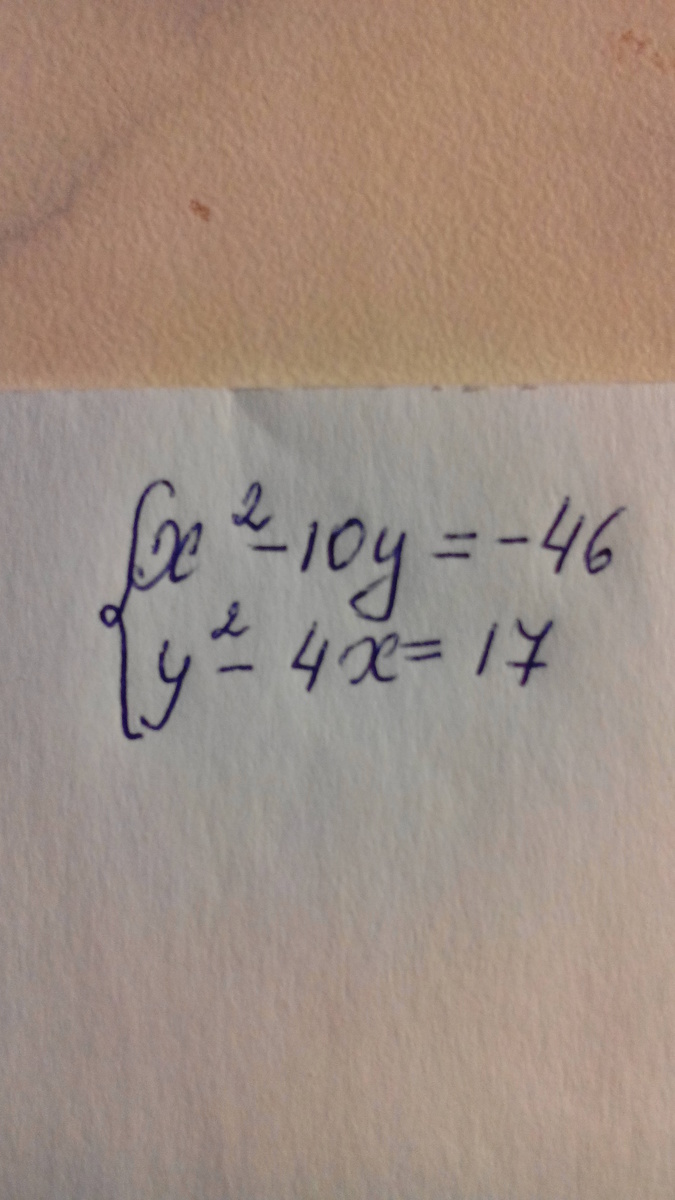 x² - 10y = -46
y² - 4x = 17